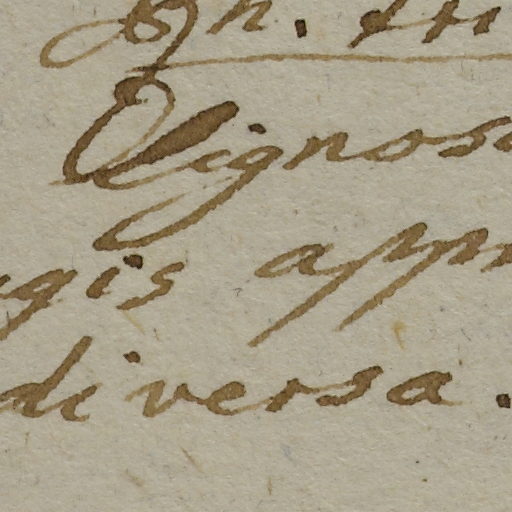 Dignos
gis app
diversa.